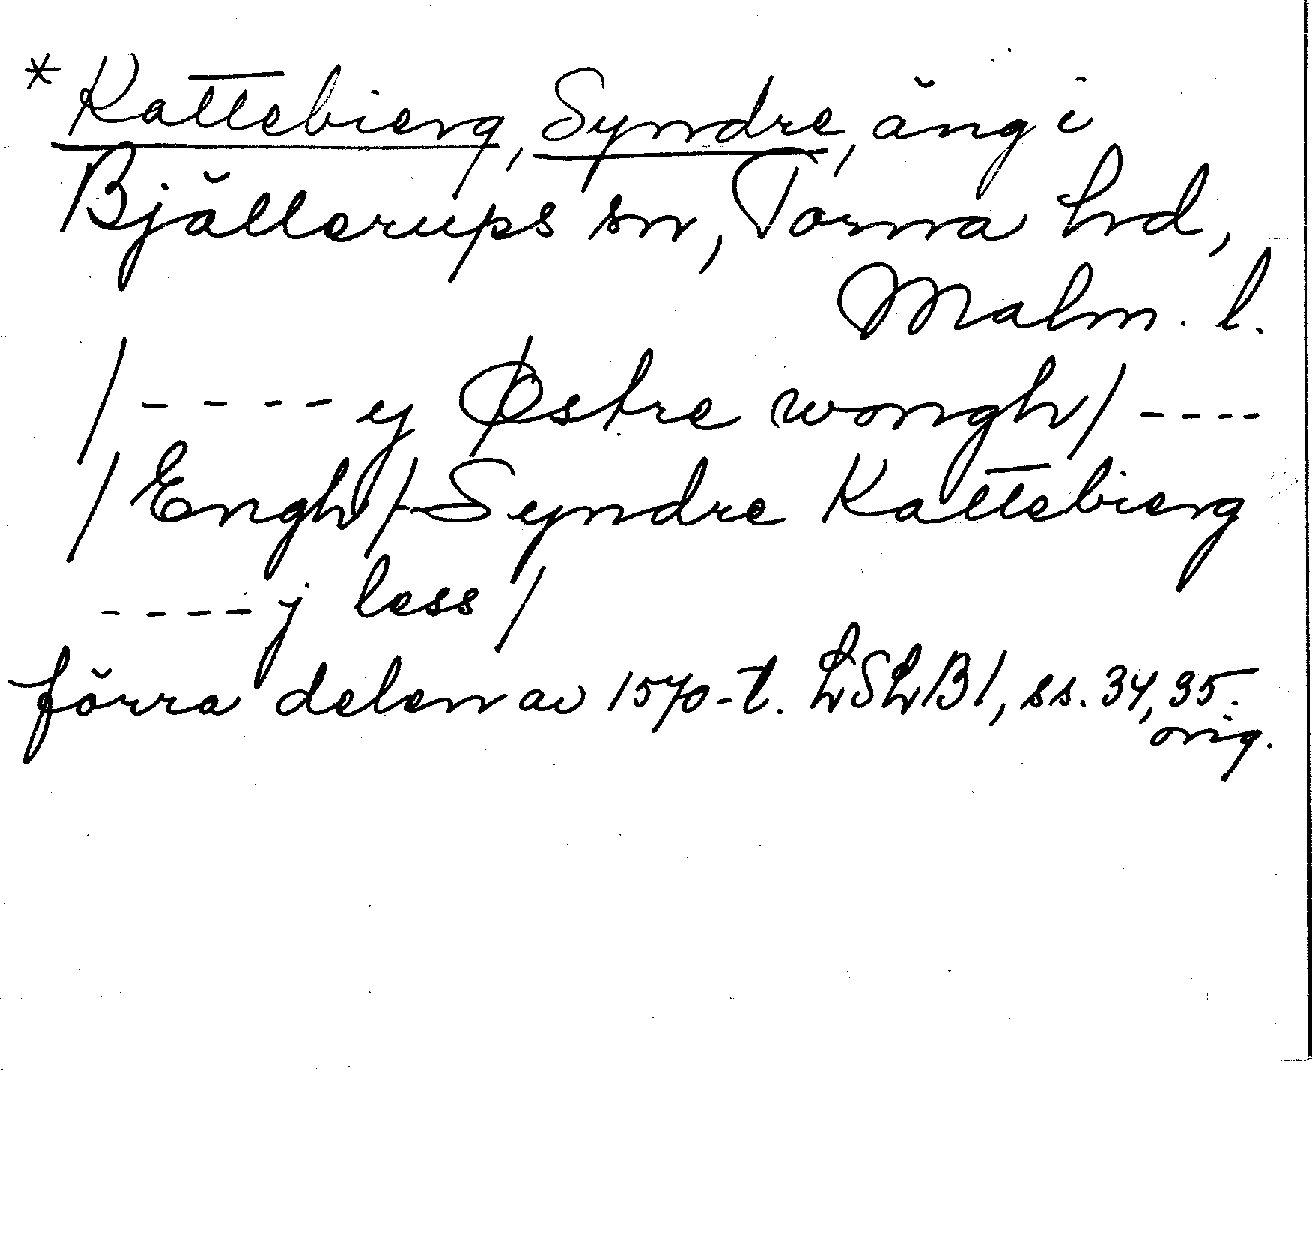 * Kattebierg, Syndre, äng i
Bjällerups sn, Torna hd,
Malm. l.
/ - - - - y Østre wongh / - - - -
/ Engh / Syndre Kattebierg
- - - - j less /
förra delen av 1570-t. LSLB1, ss. 34, 35.
orig.